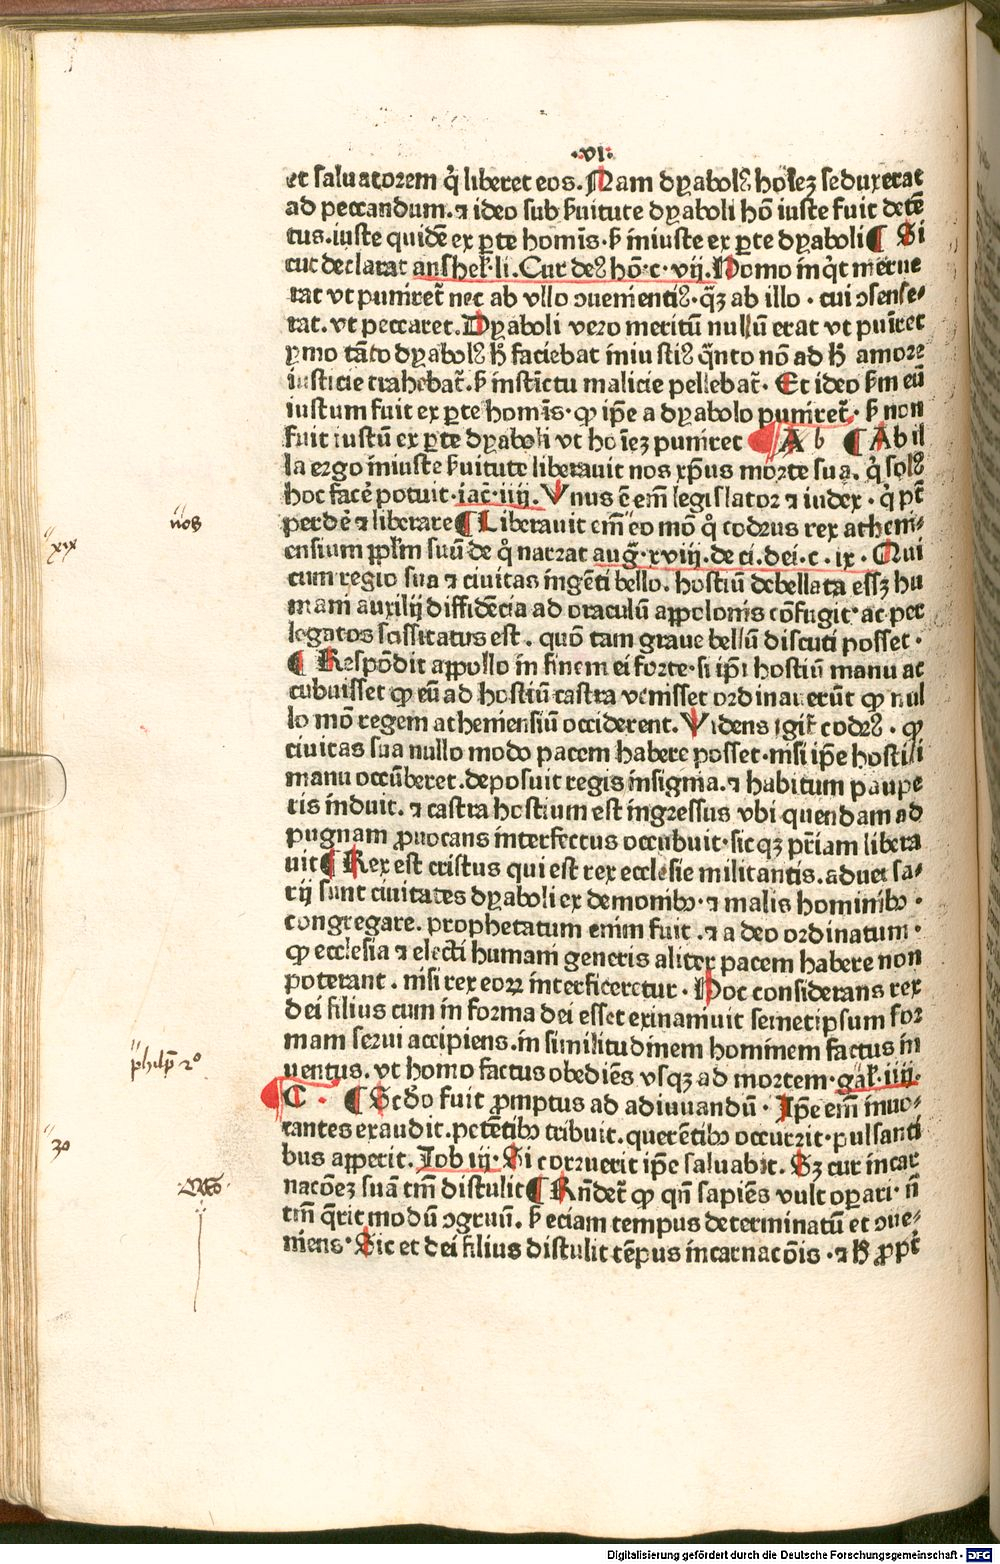 ·vi·
et saluatorem q̇ liberet eos. Nam dyabolꝰ hoı̄ez seduxerat
ad peccandum. ⁊ ideo sub ẜuitute dyaboli hō iuste fuit detē
tus. iuste quidē ex ꝑte homı̄s· ẜ iniuste ex ꝑte dyaboli ¶ Si
cut declarat anshelꝰ· li. Cur deꝰ hō· c· vij. Homo inq̇t merue
rat vt puniret᷑ nec ab vllo ↄuenientiꝰ· q̄ꝫ ab illo · cui ↄsense⸗
rat. vt peccaret. Dyaboli vero meritū nullū erat vt puīret
ymo tāto dyabolꝰ h̄ faciebat iniustiꝰ q̄nto nō ad h̄ amore
iusticie trahebat᷑. ẜ instı̄ctu malicie pellebat᷑· Et ideo ẜm eū
iustum fuit ex ꝑte homı̄s· ꝙ ip̄e a dyabolo puniret᷑· ẜ non
fuit iustū ex ꝑte dyaboli vt hoı̄ez puniret A b ¶ Ab il
la ergo iniuste ẜuitute liberauit nos xp̄us morte sua. q̇ solꝰ
hoc facē potuit· iac̄· iiij. Vnus ē em̄ legislator ⁊ iudex · q̇ pt̄
perdē ⁊ liberare ¶ Liberauit em̄ eo mō q̊ codrus rex atheni⸗
nos
ensium pp̄lm suū de q̊ narrat aug᷑· xviij. de ci. dei· c · ix · Qui
xix
cum regio sua ⁊ ciuitas ingēti bello. hostiū debellata essꝫ hu
mani auxilij diffidēcia ad oraculū appolonis cōfugit· ac per
legatos scissitatus est . quō tam graue bellū discuti posset ·
¶ Respōdit appollo in finem ei forte· si ip̄i hostiū manu ac
cubuisset ꝙ eū ad hostiū castra venisset ordinauerūt ꝙ nul
lo mō regem atheniensiū occiderent. Videns igit᷑ codrꝰ · ꝙ
ciuitas sua nullo modo pacem habere posset· nisi ip̄e hostili
manu occūberet. deposuit regis insignia. ⁊ habitum paupe
ris induit. ⁊ castra hostium est ingressus vbi quendam ad
pugnam ꝓuocans interfectus occubuit· sicqꝫ pr̄iam libera
uit ¶ Rex est cristus qui est rex ecclesie militantis. aduer sa⸗
rij sunt ciuitates dyaboli ex demonibꝰ· ⁊ malis hominibꝰ ·
congregare. prophetatum enim fuit . ⁊ a deo ordinatum ·
ꝙ ecclesia ⁊ electi humani generis aliter pacem habere non
poterant . nisi rex eoꝝ interficeretur · Hoc considerans rex
dei filius cum in forma dei esset exinaniuit semetipsum for
mam serui accipiens. in similitudinem hominem factus in
philip̄ 2°
uentus. vt homo factus obediēs vsqꝫ ad mortem· gal̄· iiij.
C · ¶ Scd̄o fuit ꝓmptus ad adiuuandū · Ip̄e em̄ inuo⸗
cantes exaudit. petētibꝰ tribuit. querētibꝰ occurrit· pulsanti
30
bus apperit. Iob iij· Si corruerit ip̄e saluabit. Sꝫ cur incar
nacōez suā tm̄ distulit ¶ Rn̄det᷑ ꝙ qn̄ sapiēs vult oꝑari· n̄
tm̄ q̄rit modū ↄgruū. ẜ eciam tempus determinatū et ↄue⸗
niens· Sic et dei filius distulit tēpus incarnacōis · ⁊ h̄ ꝓpt᷑
Digitalisierung gefördert durch die Deutsche Forschungsgemeinschaft - DFG